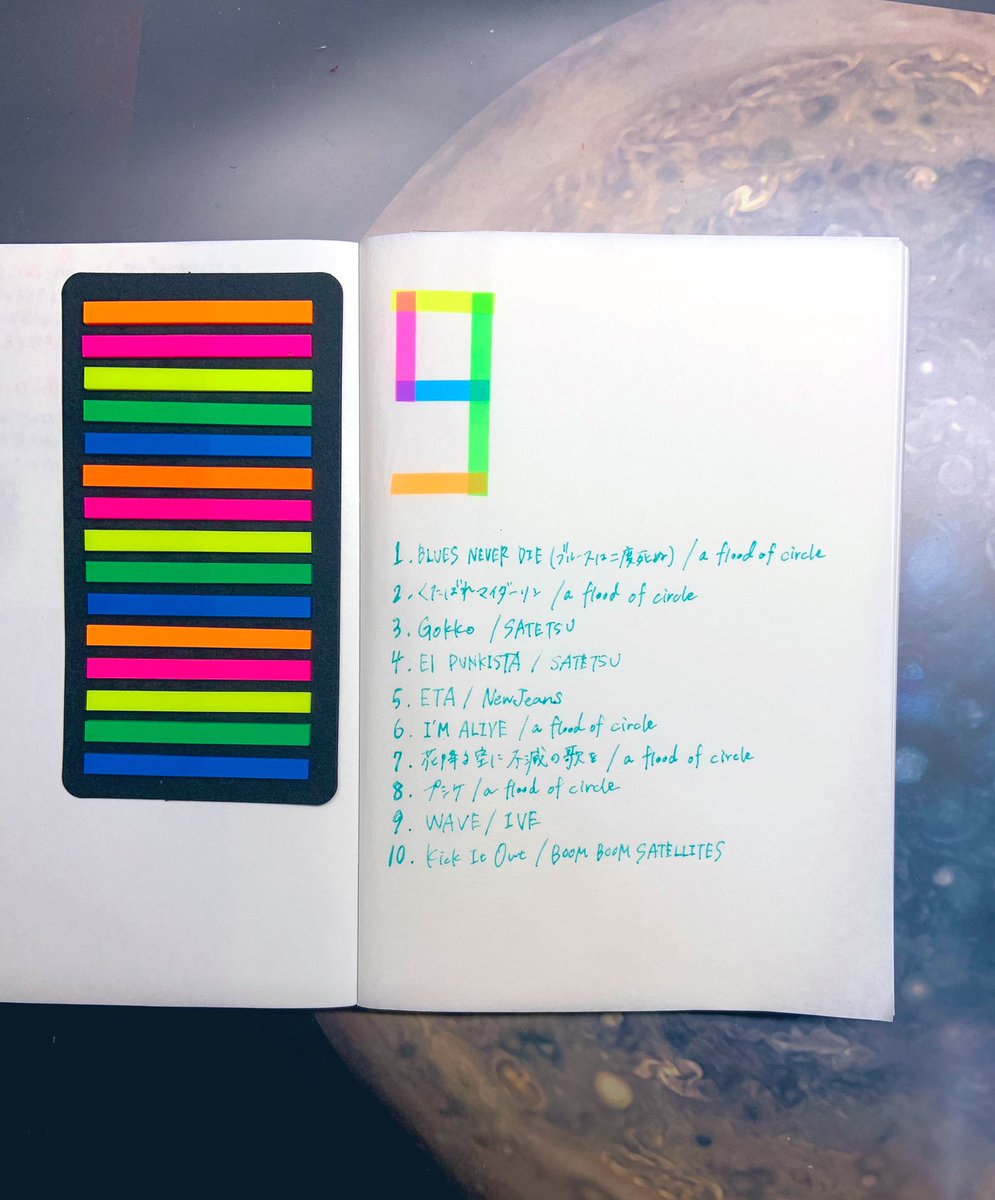 9
1. BLUES NEVER DIE (ブルースは二度死ぬ) / a flood of circle
2. くたばれマイダーリン / a flood of circle
3. Gokko / SATETSU
4. El PUNKISTA / SATETSU
5. ETA / NewJeans
6. I'M ALIVE / a flood of circle
7. 花降る空に不滅の歌を / a flood of circle
8. プシケ / a flood of circle
9. WAVE / IVE
10. Kick It Out / BOOM BOOM SATELLITES